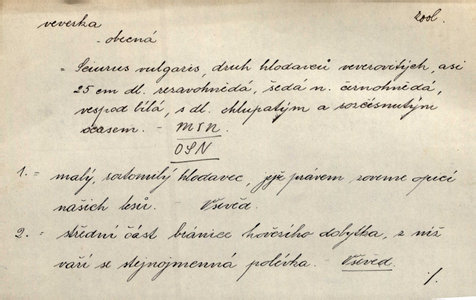 veverka
zool.
- obecná
= Sciurus vulgaris, druh hlodavců veverovitých, asi
25 cm dl. rezavohnědá, šedá n. černohnědá,
vespod bílá, s dl. chlupatým a rozčísnutým
ocasem. - MSN.
OSN
1. = malý, roztomilý hlodavec, jejž právem zoveme opicí
našich lesů. - Vševěd.
2. = střední část bránice hovězího dobytka, z níž
vaří se stejnojmenná polévka. - Všěvěd.
·/.